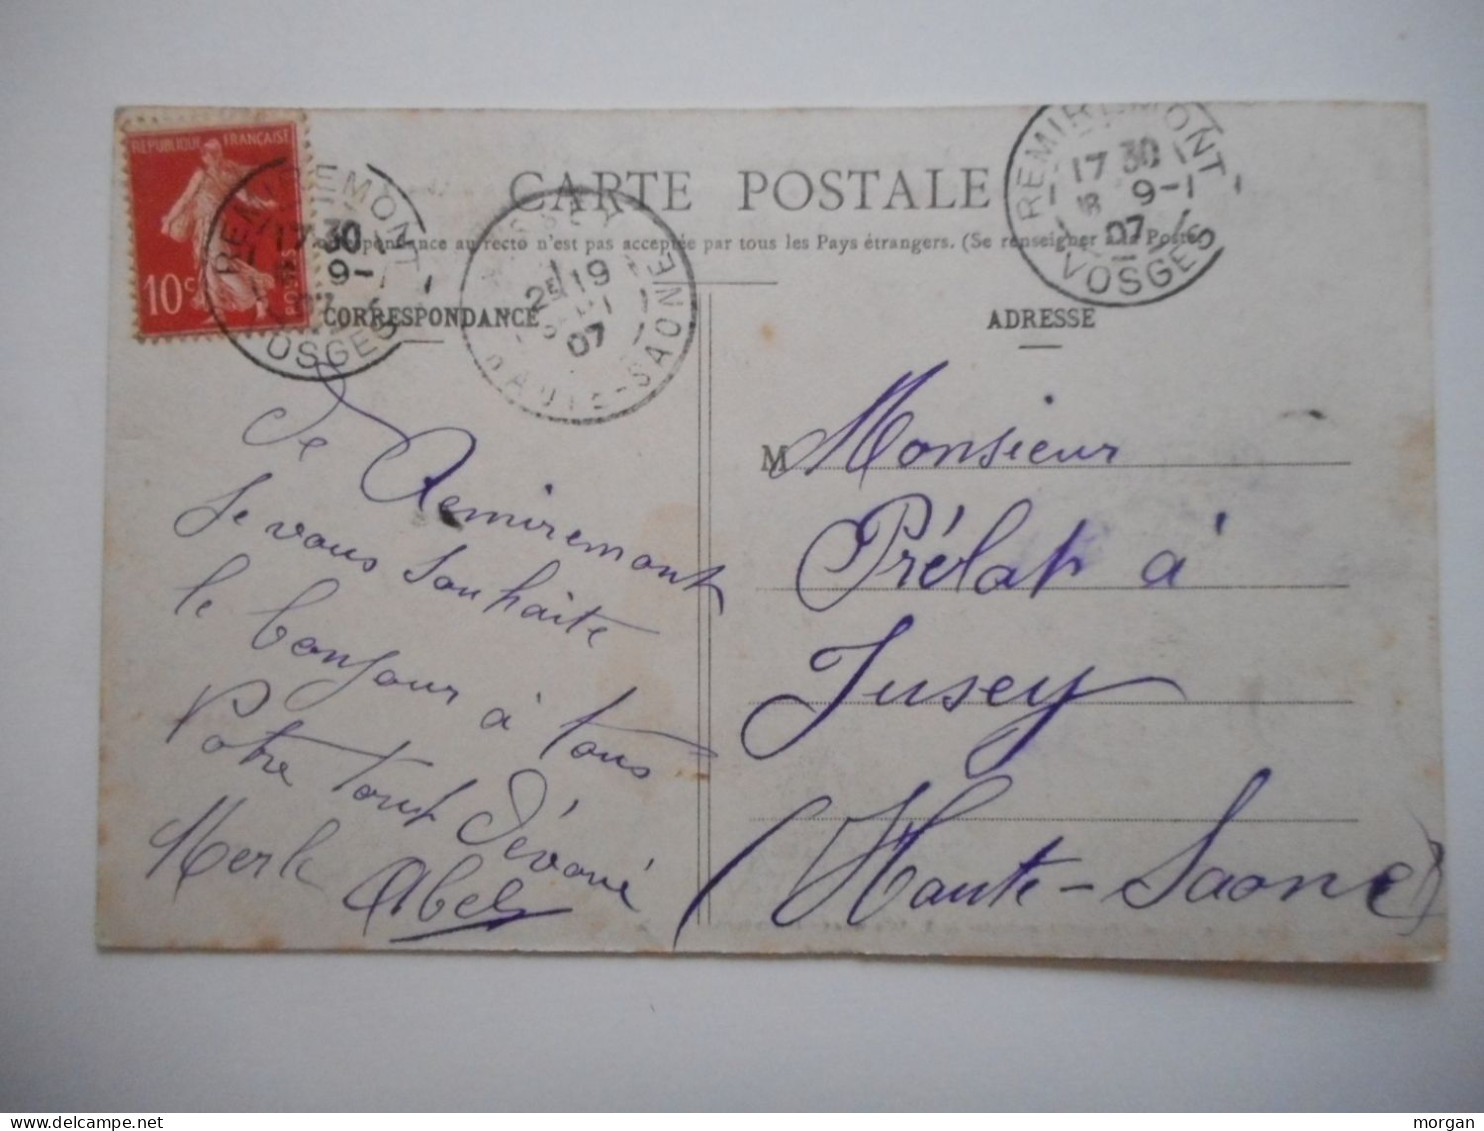 REPUBLIQUE FRANÇAISE
10c
POSTES
REMIREMONT
17 30
9-1
07
VOSGES
JUSSEY
25 19
07
HAUTE-SAONE
REMIREMONT
17 30
18 9-1
07
VOSGES
CARTE POSTALE
pondance au recto n'est pas acceptée par tous les Pays étrangers. (Se renseigner à la Poste)
CORRESPONDANCE
ADRESSE
De Remiremont
Je vous souhaite
le bonjour à tous
Votre tout Dévoué
Merle Abel
M Monsieur
Prélat à
Jussey
(Haute-Saone)
morgan